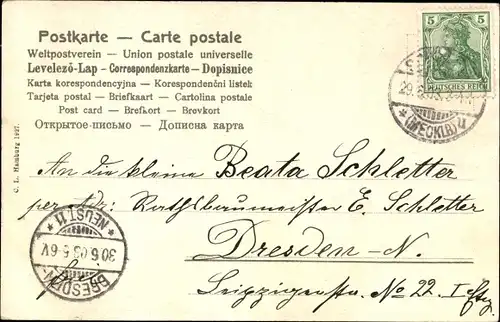 Postkarte — Carte postale
Weltpostverein — Union postale universelle
Levelező-Lap — Correspondenzkarte — Dopisnice
Karta korespondencyjna — Korespondenční listek
Tarjeta postal — Briefkaart — Cartolina postale
Post card — Brefkort — Brevkort
Открытое-письмо — Дописна карта
5 5
DEUTSCHES REICH
29.
* (MECKLB) *
C. L. Hamburg
An die kleine Beata Schletter
per Adr: Rathsbaumeister E. Schletter
Dresden-N.
Leipzigerstr. No 22. I
* NEUST. 11 *
30.6.03.6-6V
DRESDEN